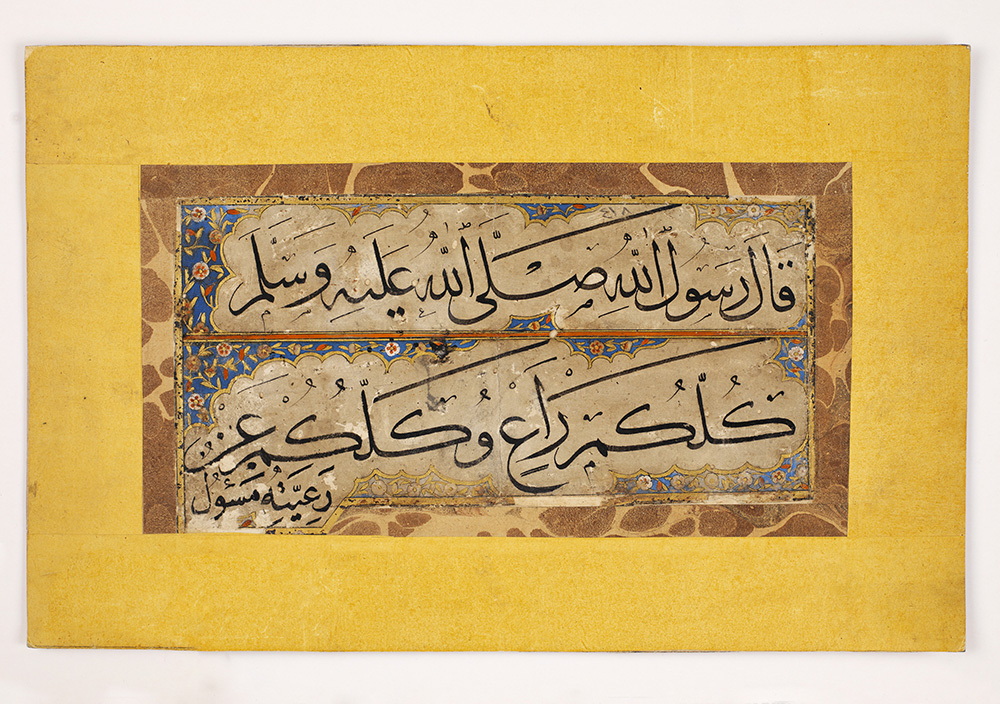 قَالَ رَسُولُ اللّٰهِ صَلَّى اللّٰهُ عَلَيْهِ وَسَلَّمَ
كُلُّكُمْ رَاعٍ وَكُلُّكُمْ عَنْ
رَعِيَّتِهِ مَسْؤُلٌ